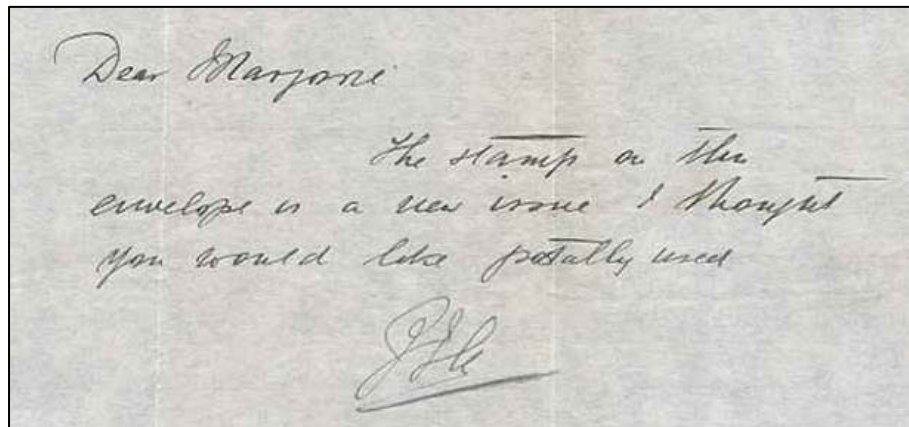 Dear Marjorie
The stamp on this
envelope is a new issue I thought
you would like postally used